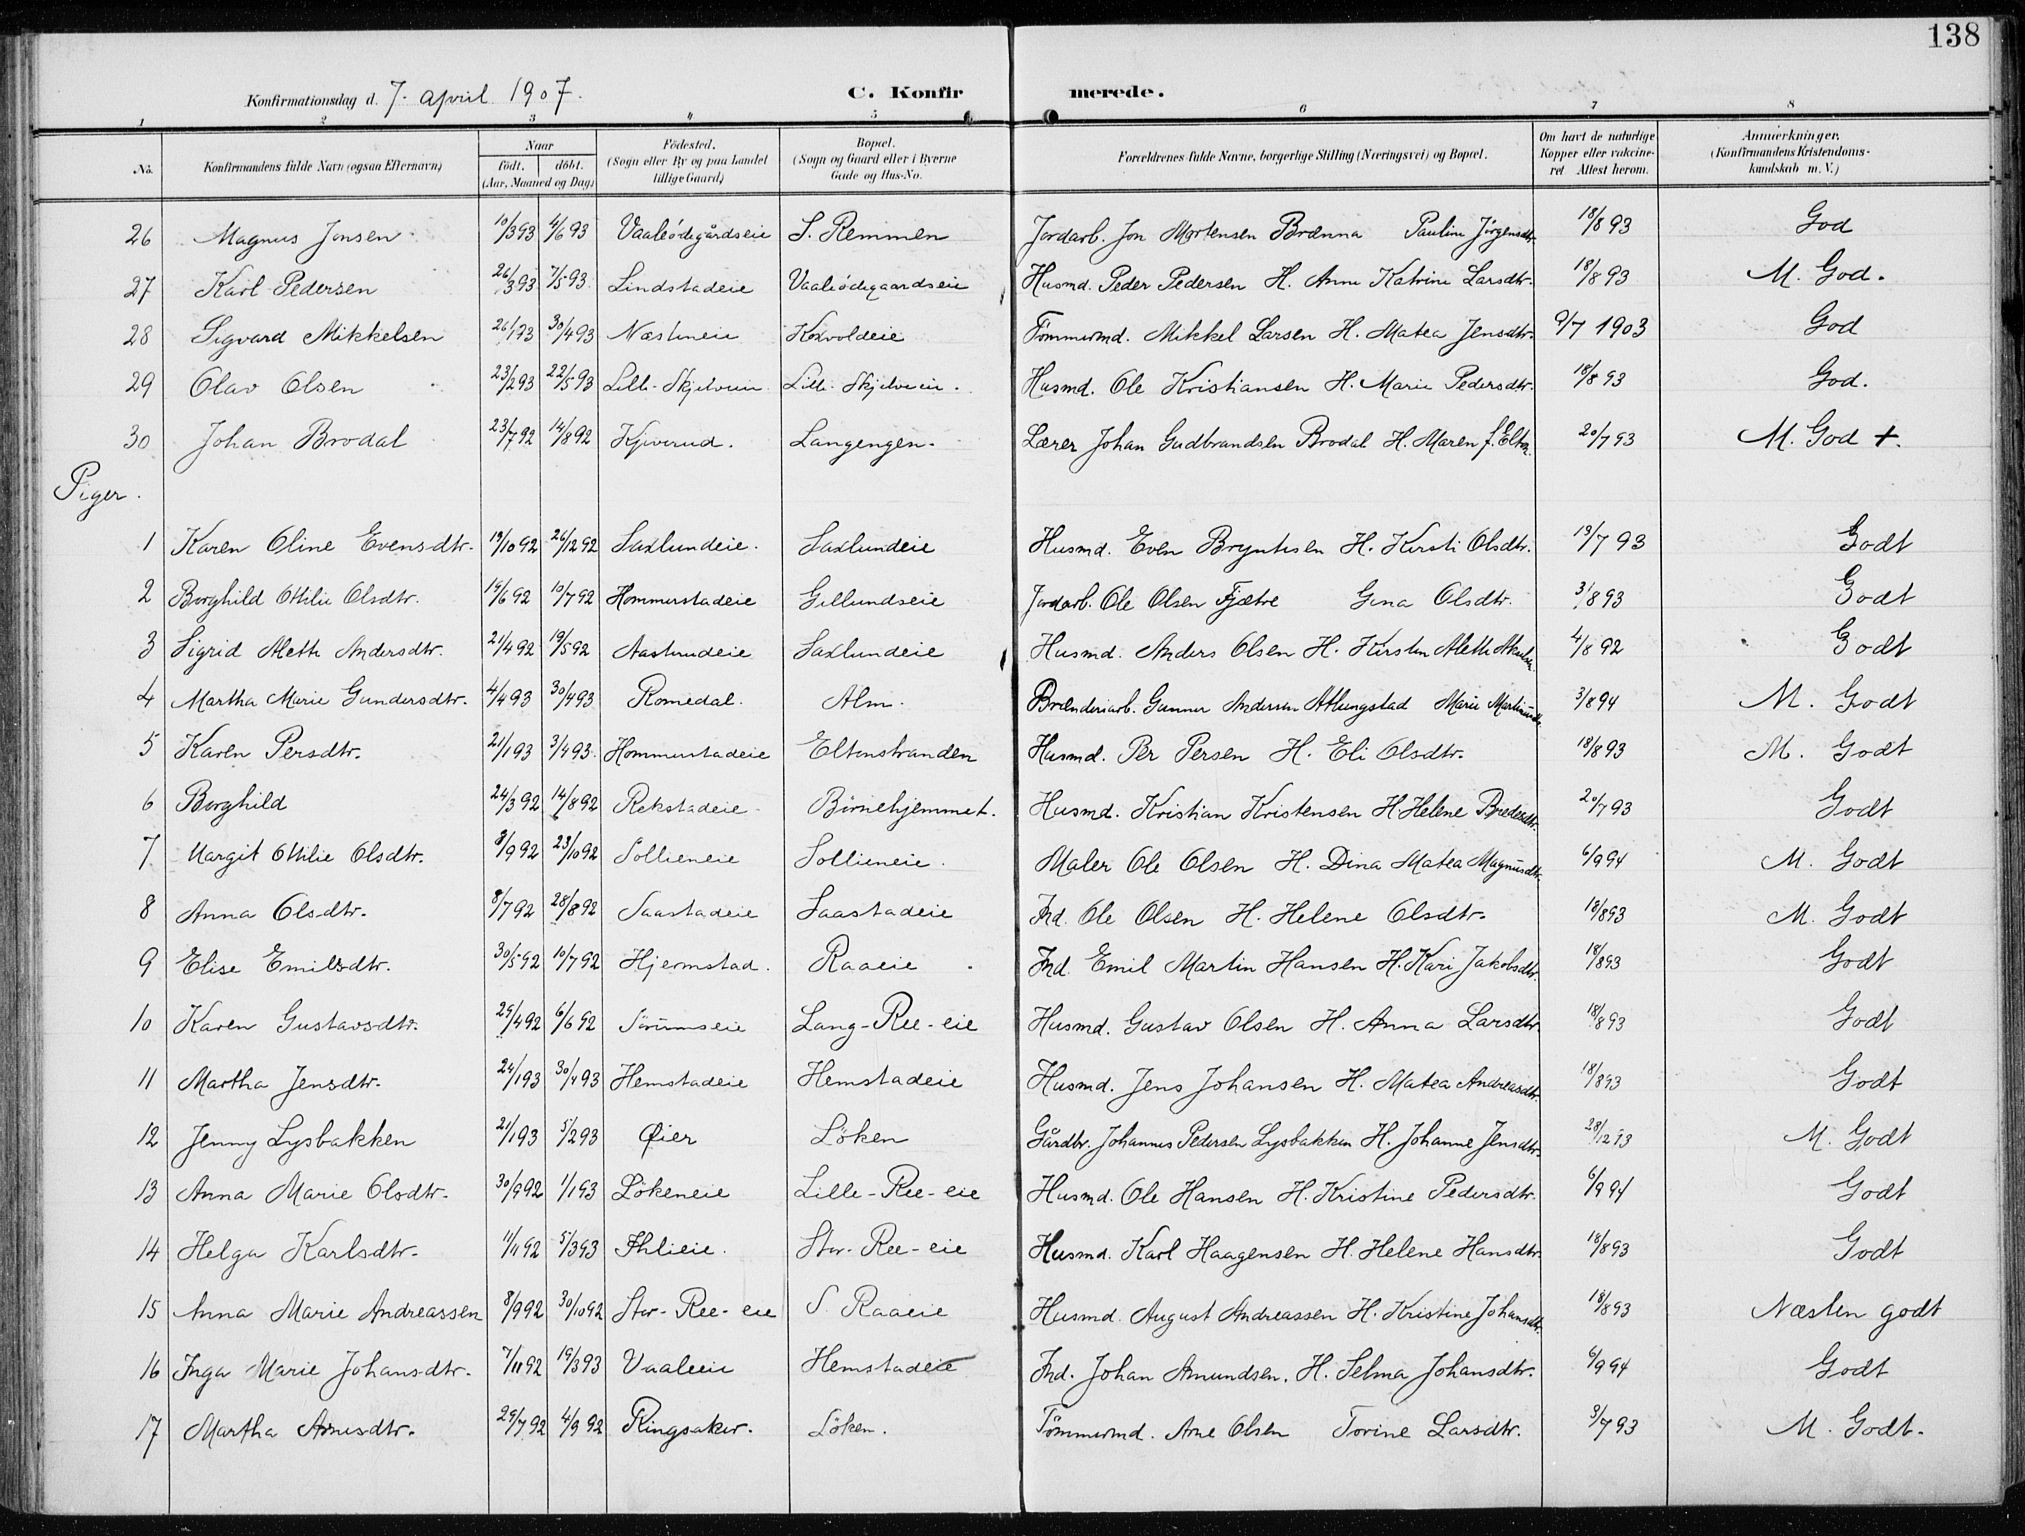 138
Konfirmationsdag d. 7. april 1907. C. Konfirmerede.
1 2 3 4 5 6 7 8
No. Konfirmandens fulde Navn (ogsaa Efternavn) Naar født. døbt. (Aar, Maaned og Dag) Fødested. (Sogn eller By og paa Landet tillige Gaard) Bopæl. (Sogn og Gaard eller i Byerne Gade og Hus-No. Forældrenes fulde Navne, borgerlige Stilling (Næringsvei) og Bopæl. Om havt de naturlige Kopper eller vakcineret. Attest herom. Anmærkninger. (Konfirmandens Kristendomskundskab m. V.)
26 Magnus Jonsen 10/3 93 4/6 93 Vaaleödegårdseie S. Remmen Jordarb. Jon Mortensen Brænna Pauline Jörgensdtr. 18/8 93 God
27 Karl Pedersen 26/3 93 7/5 93 Lindstadeie Vaaleödegaardseie Husmd. Peder Pedersen H. Anne Katrine Larsdtr. 18/8 93 M. God.
28 Sigvard Mikkelsen 26/1 93 30/4 93 Næstineie Koxvoldeie Tömmermd. Mikkel Larsen H. Matea Jensdtr. 9/7 1903 God
29 Olav Olsen 23/2 93 22/5 93 Lille-Skjelveien Lille-Skjelveien. Husmd. Ole Kristiansen H. Marie Pedersdtr. 18/8 93 God.
30 Johan Brodal 23/7 92 14/8 92 Kjeverud. Langengen. Lærer Johan Gudbrandsen Brodal H. Maren f. Elton 20/7 93 M. God +.
Piger.
1 Karen Oline Evensdtr. 19/10 92 26/12 92 Saxlundeie. Saxlundeie Husmd. Even Bryntesen H. Kirsti Olsdtr. 13/7 93 Godt
2 Borghild Otilie Olsdtr. 14/6 92 10/7 92 Hommerstadeie Gillundseie Jordarb. Ole Olsen Fjætre Gina Olsdtr. 3/8 93 Godt
3 Sigrid Alette Andersdtr. 21/4 92 19/5 92 Aasterudeie Saxlundeie Husmd. Anders Olsen H. Kirsten Alette 4/8 92 Godt
4 Martha Marie Gundersdtr. 4/4 93 30/4 93 Romedal. Alm. Brænderiarb. Gunner Andersen Atlungstad Marie Martinsdtr. 3/8 94 M. Godt
5 Karen Persdtr. 21/1 93 3/4 93 Hommerstadeie Eltonstranden Husmd. Per Persen H. Eli Olsdtr. 18/8 93 M. Godt
6 Borghild 24/3 92 14/8 92 Rekstadeie Börnehjemmet. Husmd. Kristian Kristensen H Helene Bredesdtr. 20/7 93 Godt
7 Margit Otilie Olsdtr. 8/9 92 23/10 92 Sollieneie Sollieneie. Maler Ole Olsen H. Dina Matea Magnusdtr. 6/9 94 M. Godt
8 Anna Olsdtr. 8/7 92 28/8 92 Saastadeie Saastadeie Ind. Ole Olsen H. Helene Olsdtr. 18/8 93 M. Godt
9 Elise Emilsdtr. 30/5 92 10/7 92 Hjermstad. Raaeie Ind. Emil Martin Hansen H. Kari Jakobsdtr. 18/8 93 Godt
10 Karen Gustavsdtr. 29/4 92 6/6 92 Sörumseie Lang-Ree-eie Husmd. Gustav Olsen H. Anna Larsdtr. 18/8 93 Godt
11 Martha Jensdtr. 24/1 93 30/4 93 Hemstadeie Hemstadeie Husmd. Jens Johansen H. Matea Andreasdtr. 18/8 93 Godt
12 Jenny Lysbakken 21/1 93 5/2 93 Öier Löken Gårdbr. Johannes Pedersen Lysbakken H. Johanne Jensdtr. 28/12 93 M. Godt
13 Anna Marie Olsdtr. 30/9 92 1/1 93 Lökeneie Lille-Ree-eie Husmd. Ole Hansen H. Kristine Pedersdtr. 6/9 94 Godt
14 Helga Karlsdtr. 11/11 92 5/3 93 Ihlieie. Stor-Ree-eie Husmd. Karl Haagensen H. Helene Hansdtr. 18/8 93 Godt
15 Anna Marie Andreassen 8/9 92 30/10 92 Stor-Ree-eie S. Raaeie Husmd. August Andreassen H. Kristine Johansdtr. 18/8 93 Næsten godt
16 Inga Marie Johansdtr. 7/11 92 19/3 93 Vaaleeie Hemstadeie Ind. Johan Amundsen. H. Selma Johansdtr. 6/9 94 Godt
17 Martha Arnesdtr. 29/7 92 4/9 92 Ringsaker. Löken. Tömmermd. Arne Olsen Torine Larsdtr. 3/7 93 M. Godt.